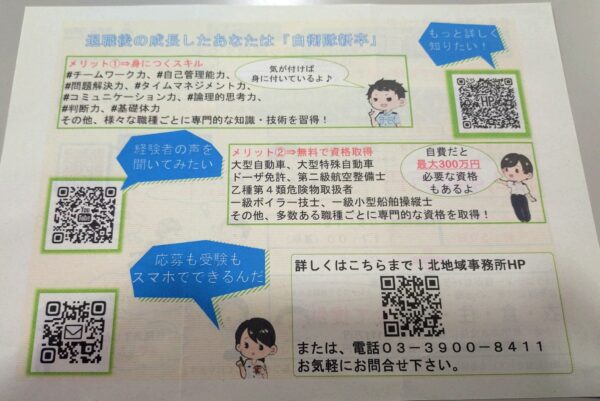 退職後の成長したあなたは「自衛隊新卒」
もっと詳しく
知りたい！
メリット①⇒身につくスキル
#チームワーク力、#自己管理能力、
#問題解決力、#タイムマネジメント力、
#コミュニケーション力、#論理的思考力、
#判断力、#基礎体力
その他、様々な職種ごとに専門的な知識・技術を習得！
気が付けば
身に付いているよ♪
HP
経験者の声を
聞いてみたい
メリット②⇒無料で資格取得
大型自動車、大型特殊自動車
ドーザ免許、第二級航空整備士
乙種第４類危険物取扱者
一級ボイラー技士、一級小型船舶操縦士
その他、多数ある職種ごとに専門的な資格を取得！
自費だと
最大300万円
必要な資格
もあるよ
応募も受験も
スマホでできるんだ
詳しくはこちらまで↓北地域事務所HP
または、電話０３－３９００－８４１１
お気軽にお問合せ下さい。